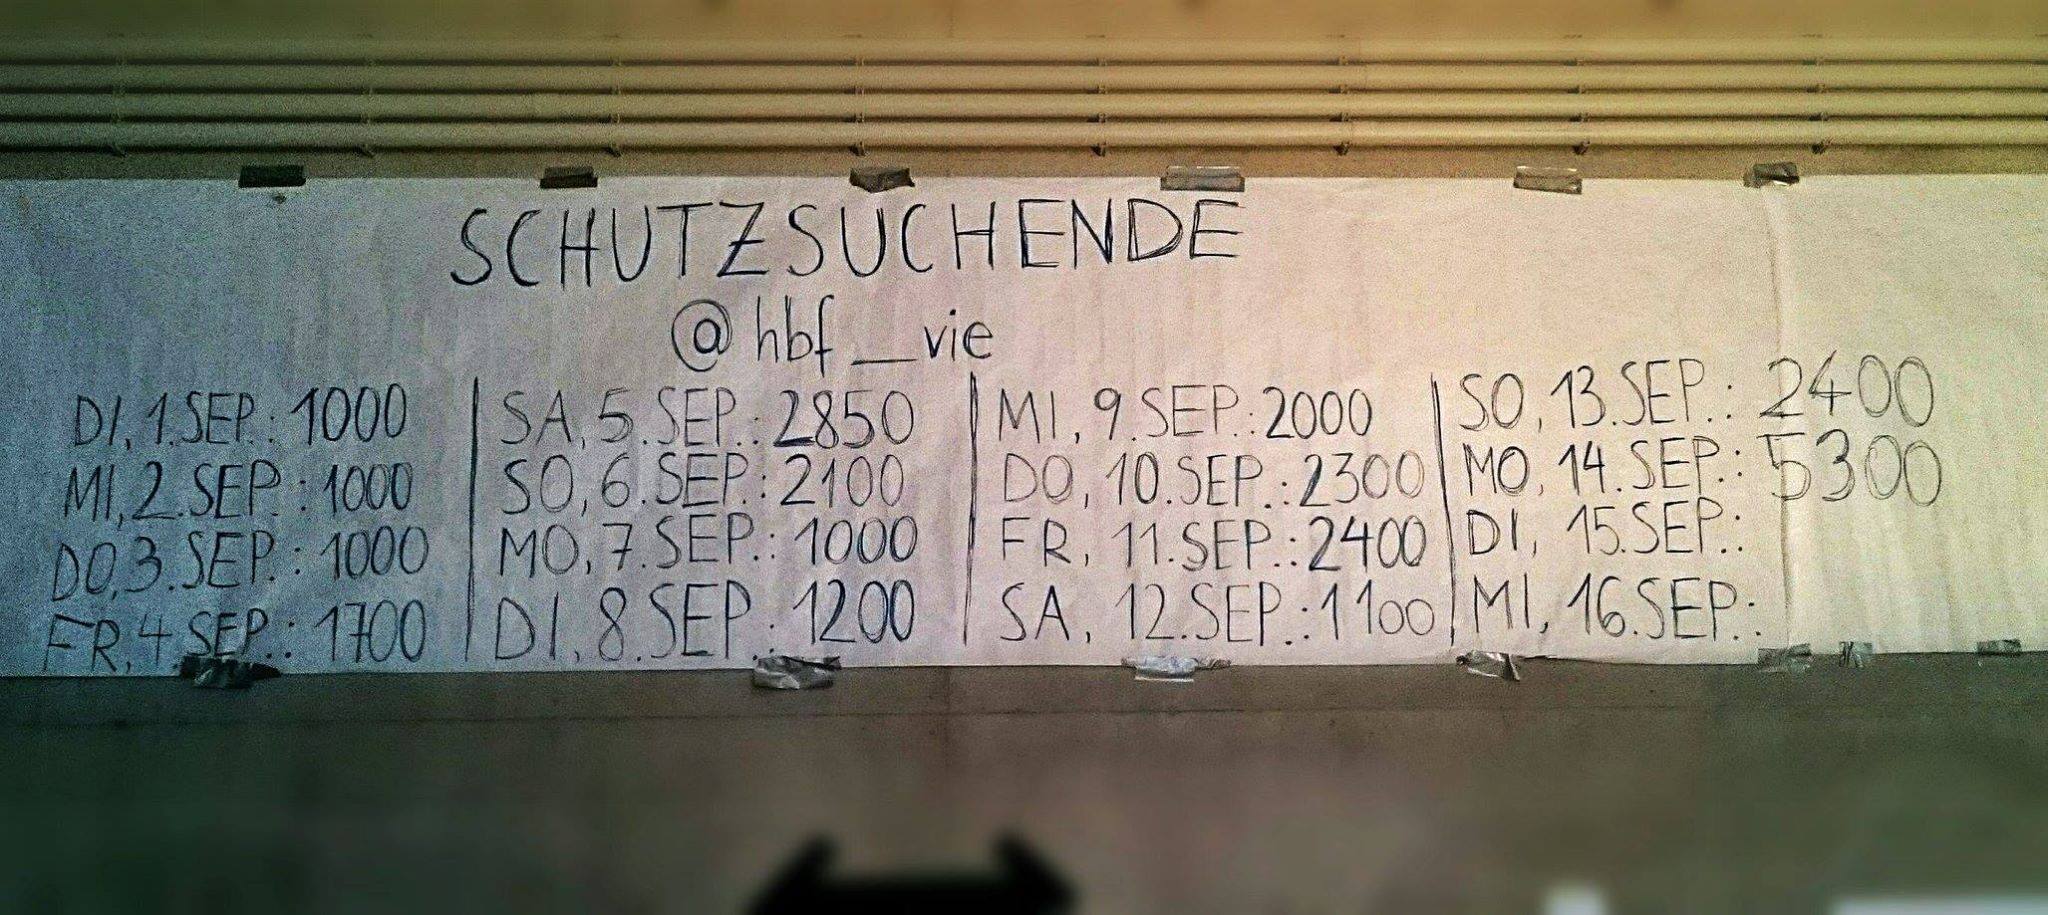 SCHUTZSUCHENDE
@hbf_vie
DI, 1.SEP.: 1000
MI, 2.SEP.: 1000
DO, 3.SEP.: 1000
FR, 4.SEP.: 1700
SA, 5.SEP.: 2850
SO, 6.SEP.: 2100
MO, 7.SEP.: 1000
DI, 8.SEP.: 1200
MI, 9.SEP.: 2000
DO, 10.SEP.: 2300
FR, 11.SEP.: 2400
SA, 12.SEP.: 1100
SO, 13.SEP.: 2400
MO, 14.SEP.: 5300
DI, 15.SEP.:
MI, 16.SEP.: